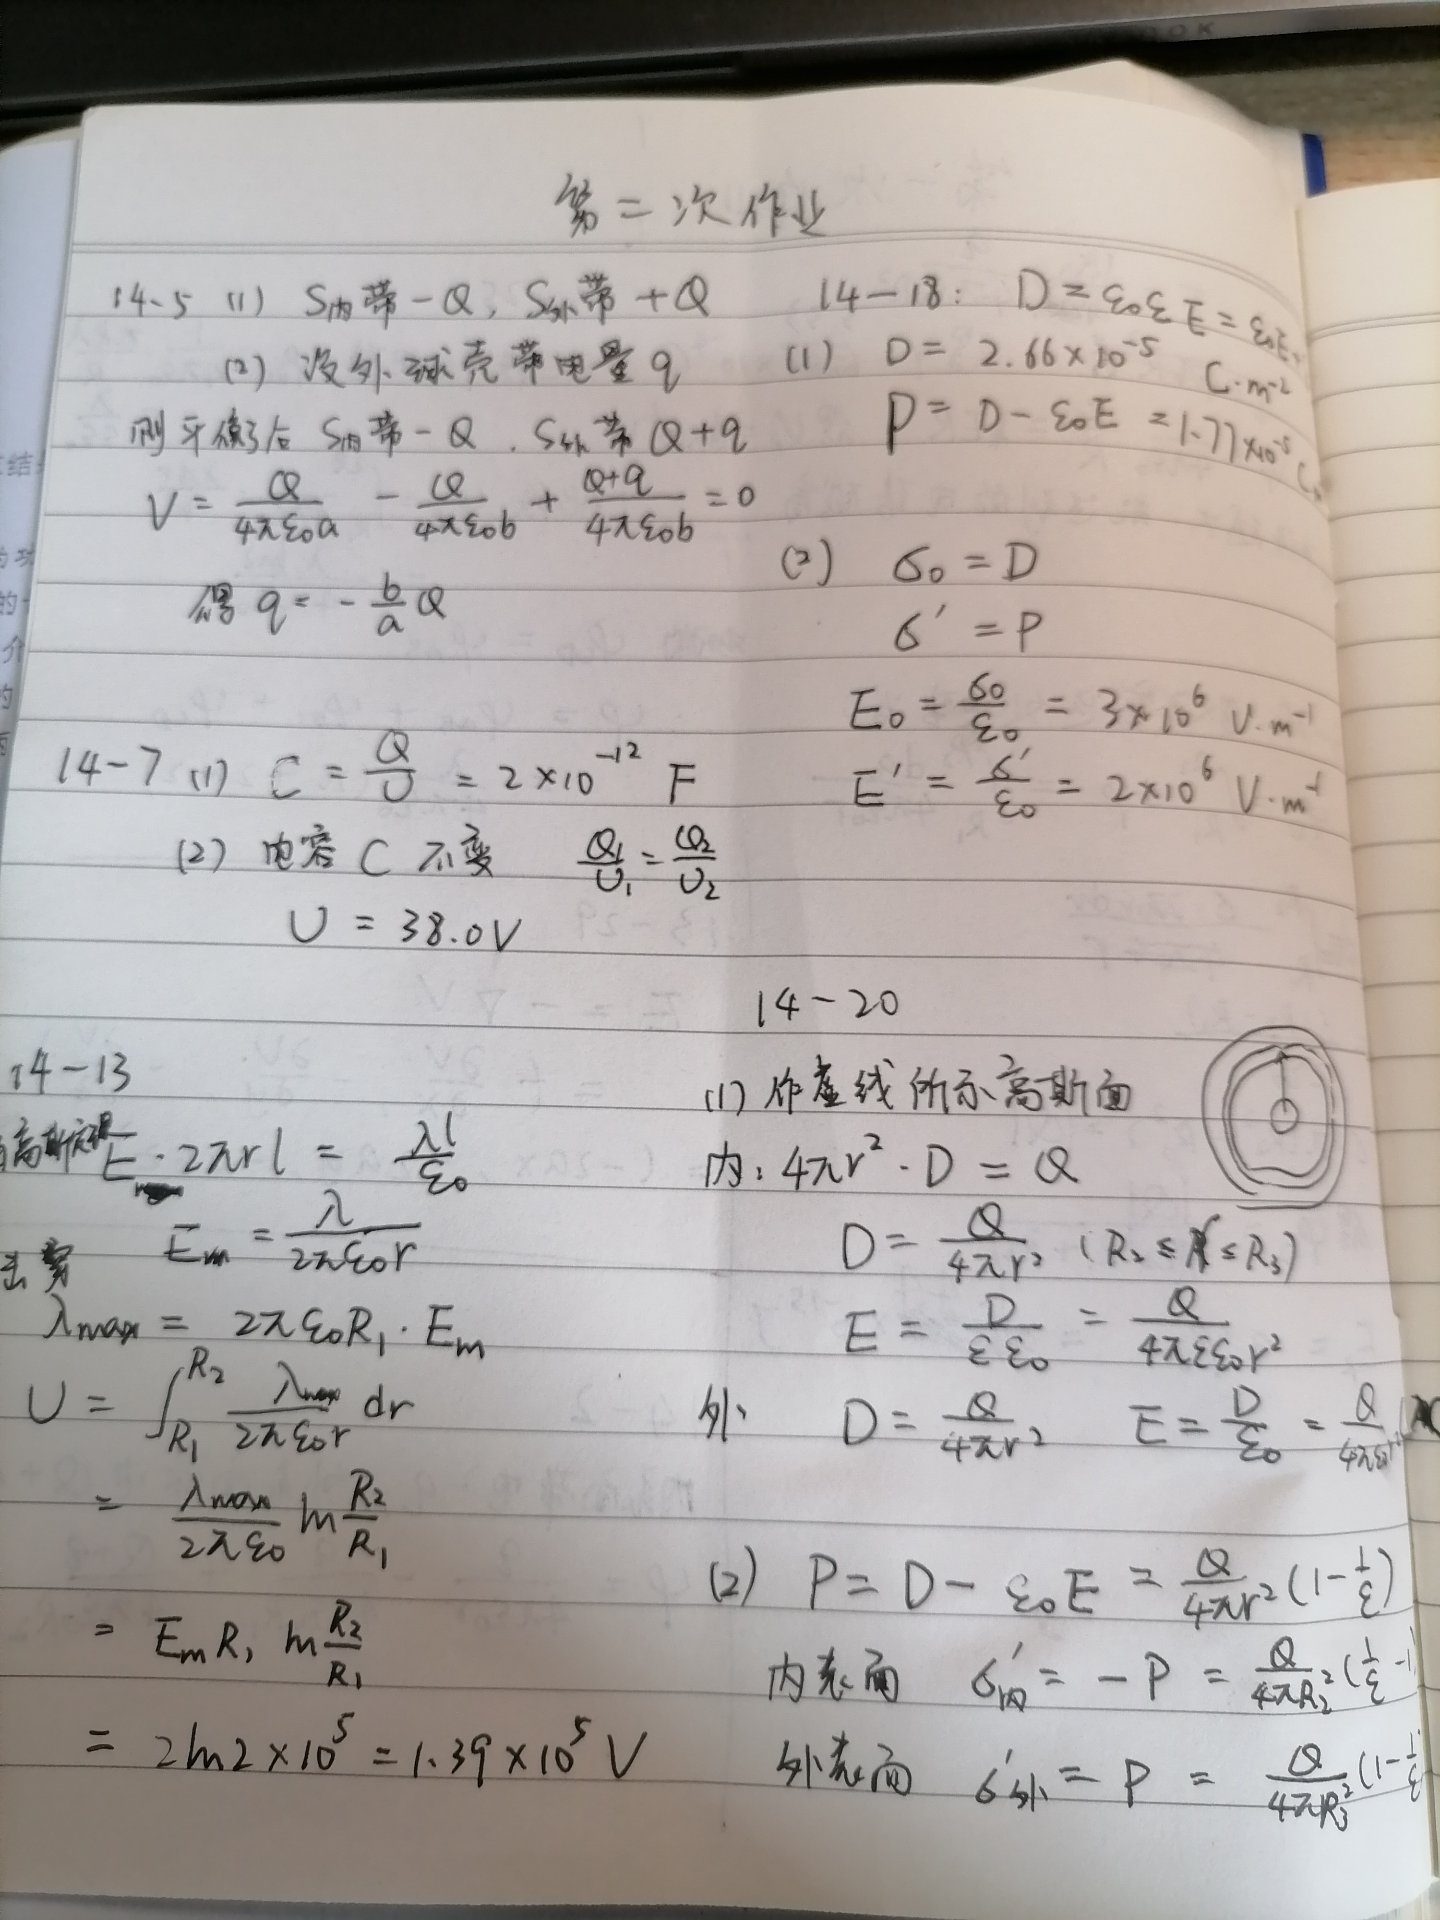 第二次作业
14-5 (1) S内带-Q, S外带+Q
(2) 设外球壳带电量q
则 后 S内带-Q, S外带Q+q
V = Q/4πε₀a - Q/4πε₀b + Q+q/4πε₀b = 0
得 q = -b/a Q
14-7 (1) C = Q/U = 2×10⁻¹² F
(2) 电容C不变 Q₁/U₁ = Q₂/U₂
U = 38.0V
14-13
高斯定理 E·2πrl = λl/ε₀
Em = λ/2πε₀r
击穿
λmax = 2πε₀R₁·Em
U = ∫_R₁^R₂ λmax/2πε₀r dr
= λmax/2πε₀ ln R₂/R₁
= EmR₁ ln R₂/R₁
= 2ln2×10⁵ = 1.39×10⁵ V
14-18: D = ε₀εE = ε₀E
(1) D = 2.66×10⁻⁵ C·m⁻²
P = D - ε₀E = 1.77×10⁻⁵ C
(2) σ₀ = D
σ' = P
E₀ = σ₀/ε₀ = 3×10⁶ V·m⁻¹
E' = σ'/ε₀ = 2×10⁶ V·m⁻¹
14-20
(1) 作虚线所示高斯面
内: 4πr²·D = Q
D = Q/4πr² (R₂ ≤ r ≤ R₃)
E = D/εε₀ = Q/4πεε₀r²
外 D = Q/4πr² E = D/ε₀ = Q/4πε₀r²
(2) P = D - ε₀E = Q/4πr² (1-1/ε)
内表面 σ'内 = -P = Q/4πR₂² (1/ε-1)
外表面 σ'外 = P = Q/4πR₃² (1-1/ε